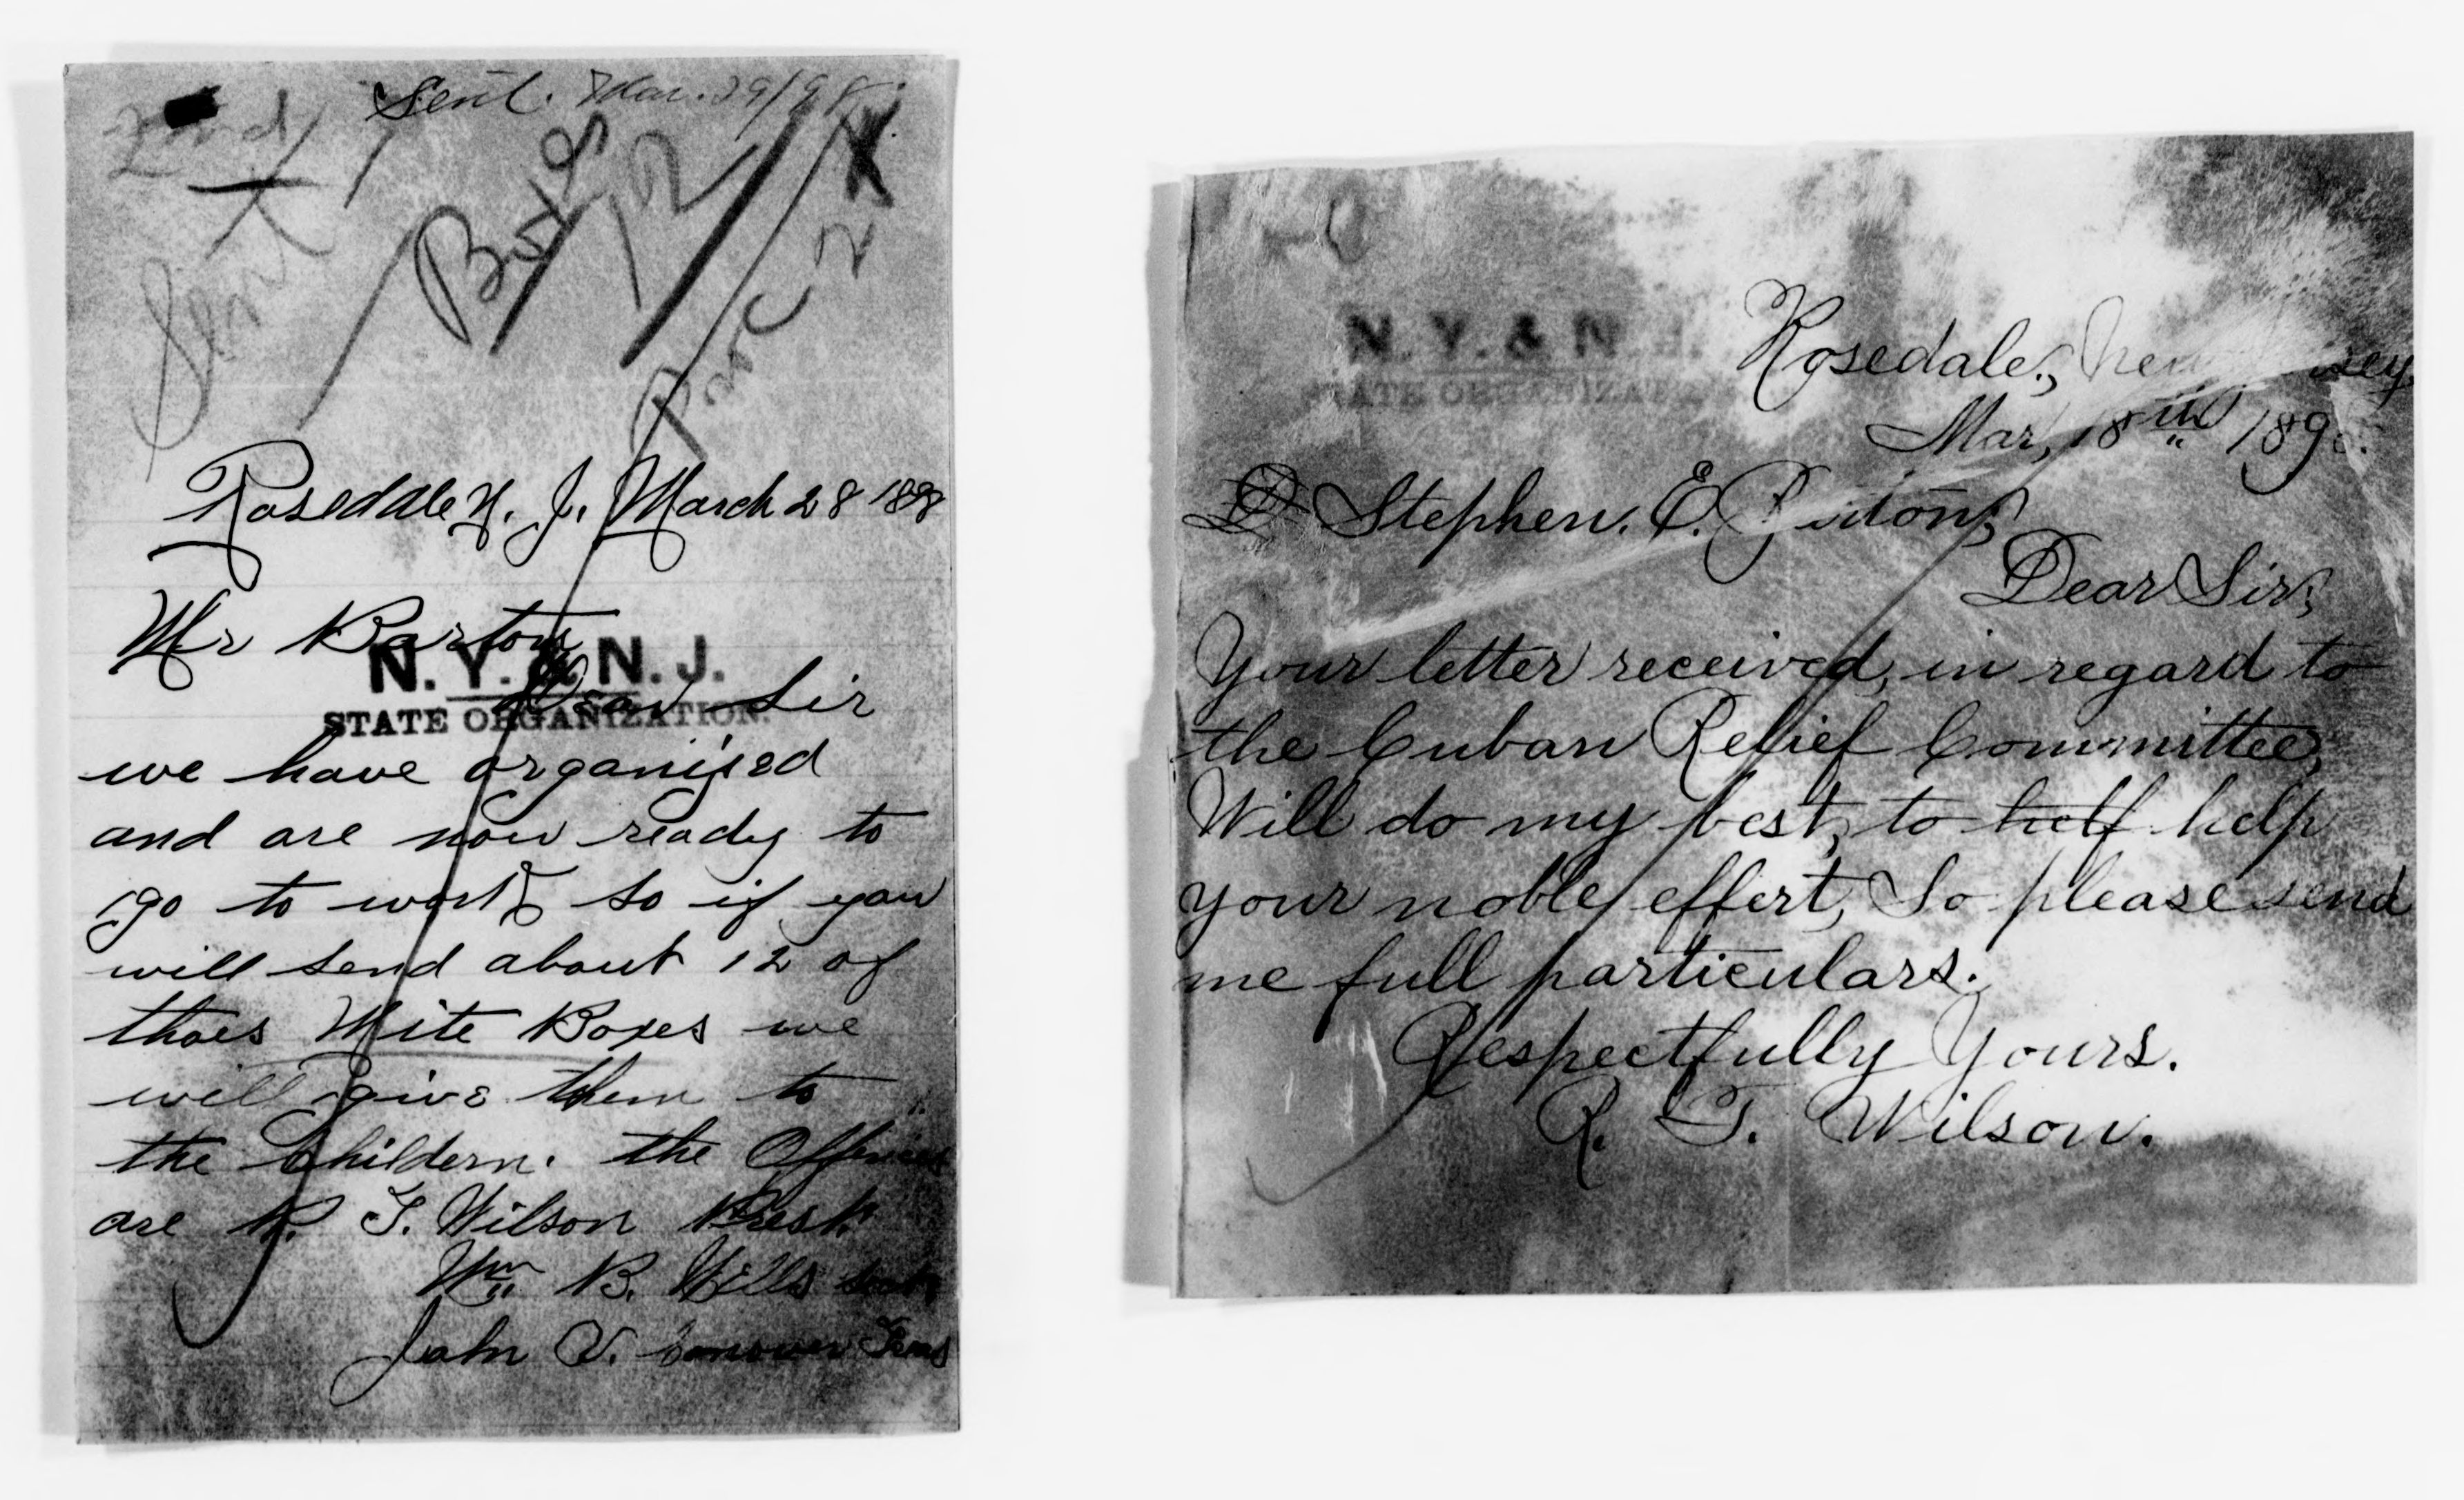 Sent. Mar. 29/98.
Sent
Boxes
12
Rosedale N. J. March 28 1898
Mr Barton
N. Y. & N. J.
STATE ORGANIZATION.
Dear Sir
we have organised
and are now ready to
go to work so if you
will send about 12 of
thoes Mite Boxes we
will give them to
the Childern. the Officers
are R. T. Wilson Prest
Wm B. Wells Sect
John V. Conover Treas
N. Y. & N.
STATE ORGANIZA
Rosedale, New sey
Mar, 18th 189
Stephen. E. Barton,
Dear Sir,
Your letter received, in regard to
the Cuban Relief Committee,
Will do my best, to helf help
your noble effert, So please send
me full particulars.
Respectfully Yours.
R. T. Wilson.